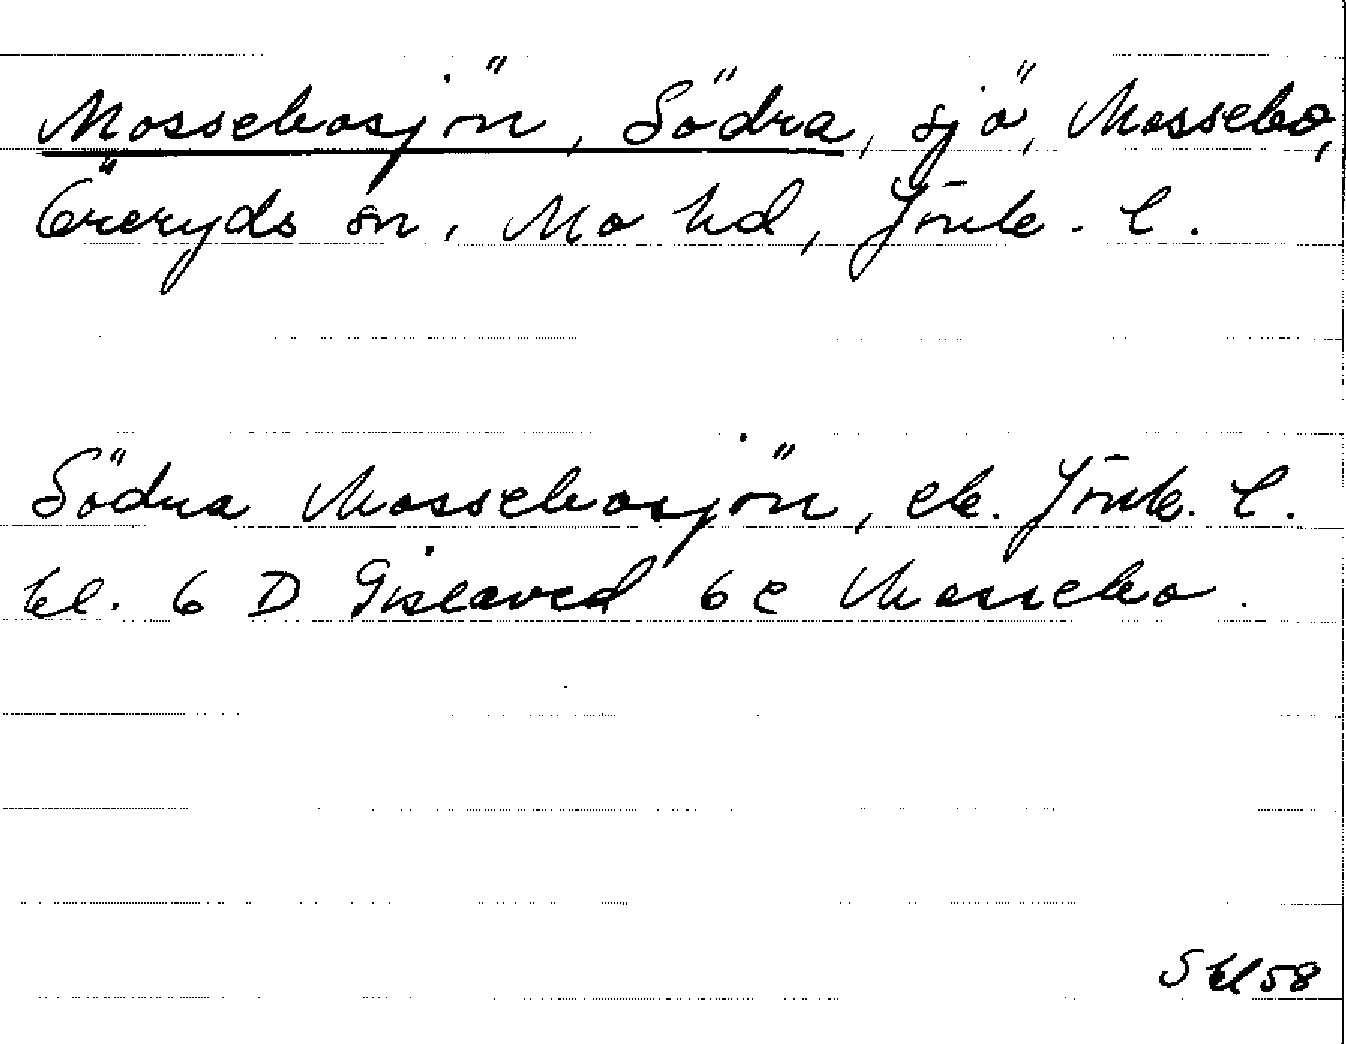 Mossebosjön, Södra, sjö, Mossebo,
Öreryds sn, Mo hd, Jönk. l.
Södra Mossebosjön, ek. Jönk. l.
bl. 6 D Gislaved 6 c Mossebo.
S bl 58